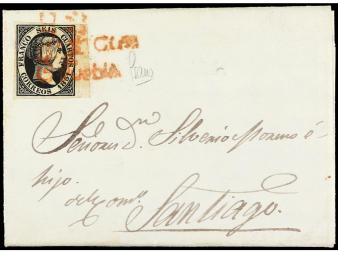 FRANCO SEIS CUARTOS
CORREOS 1851
Señores Dn. Silverio Moreno é
hijo.
del Com.o
Santiago.